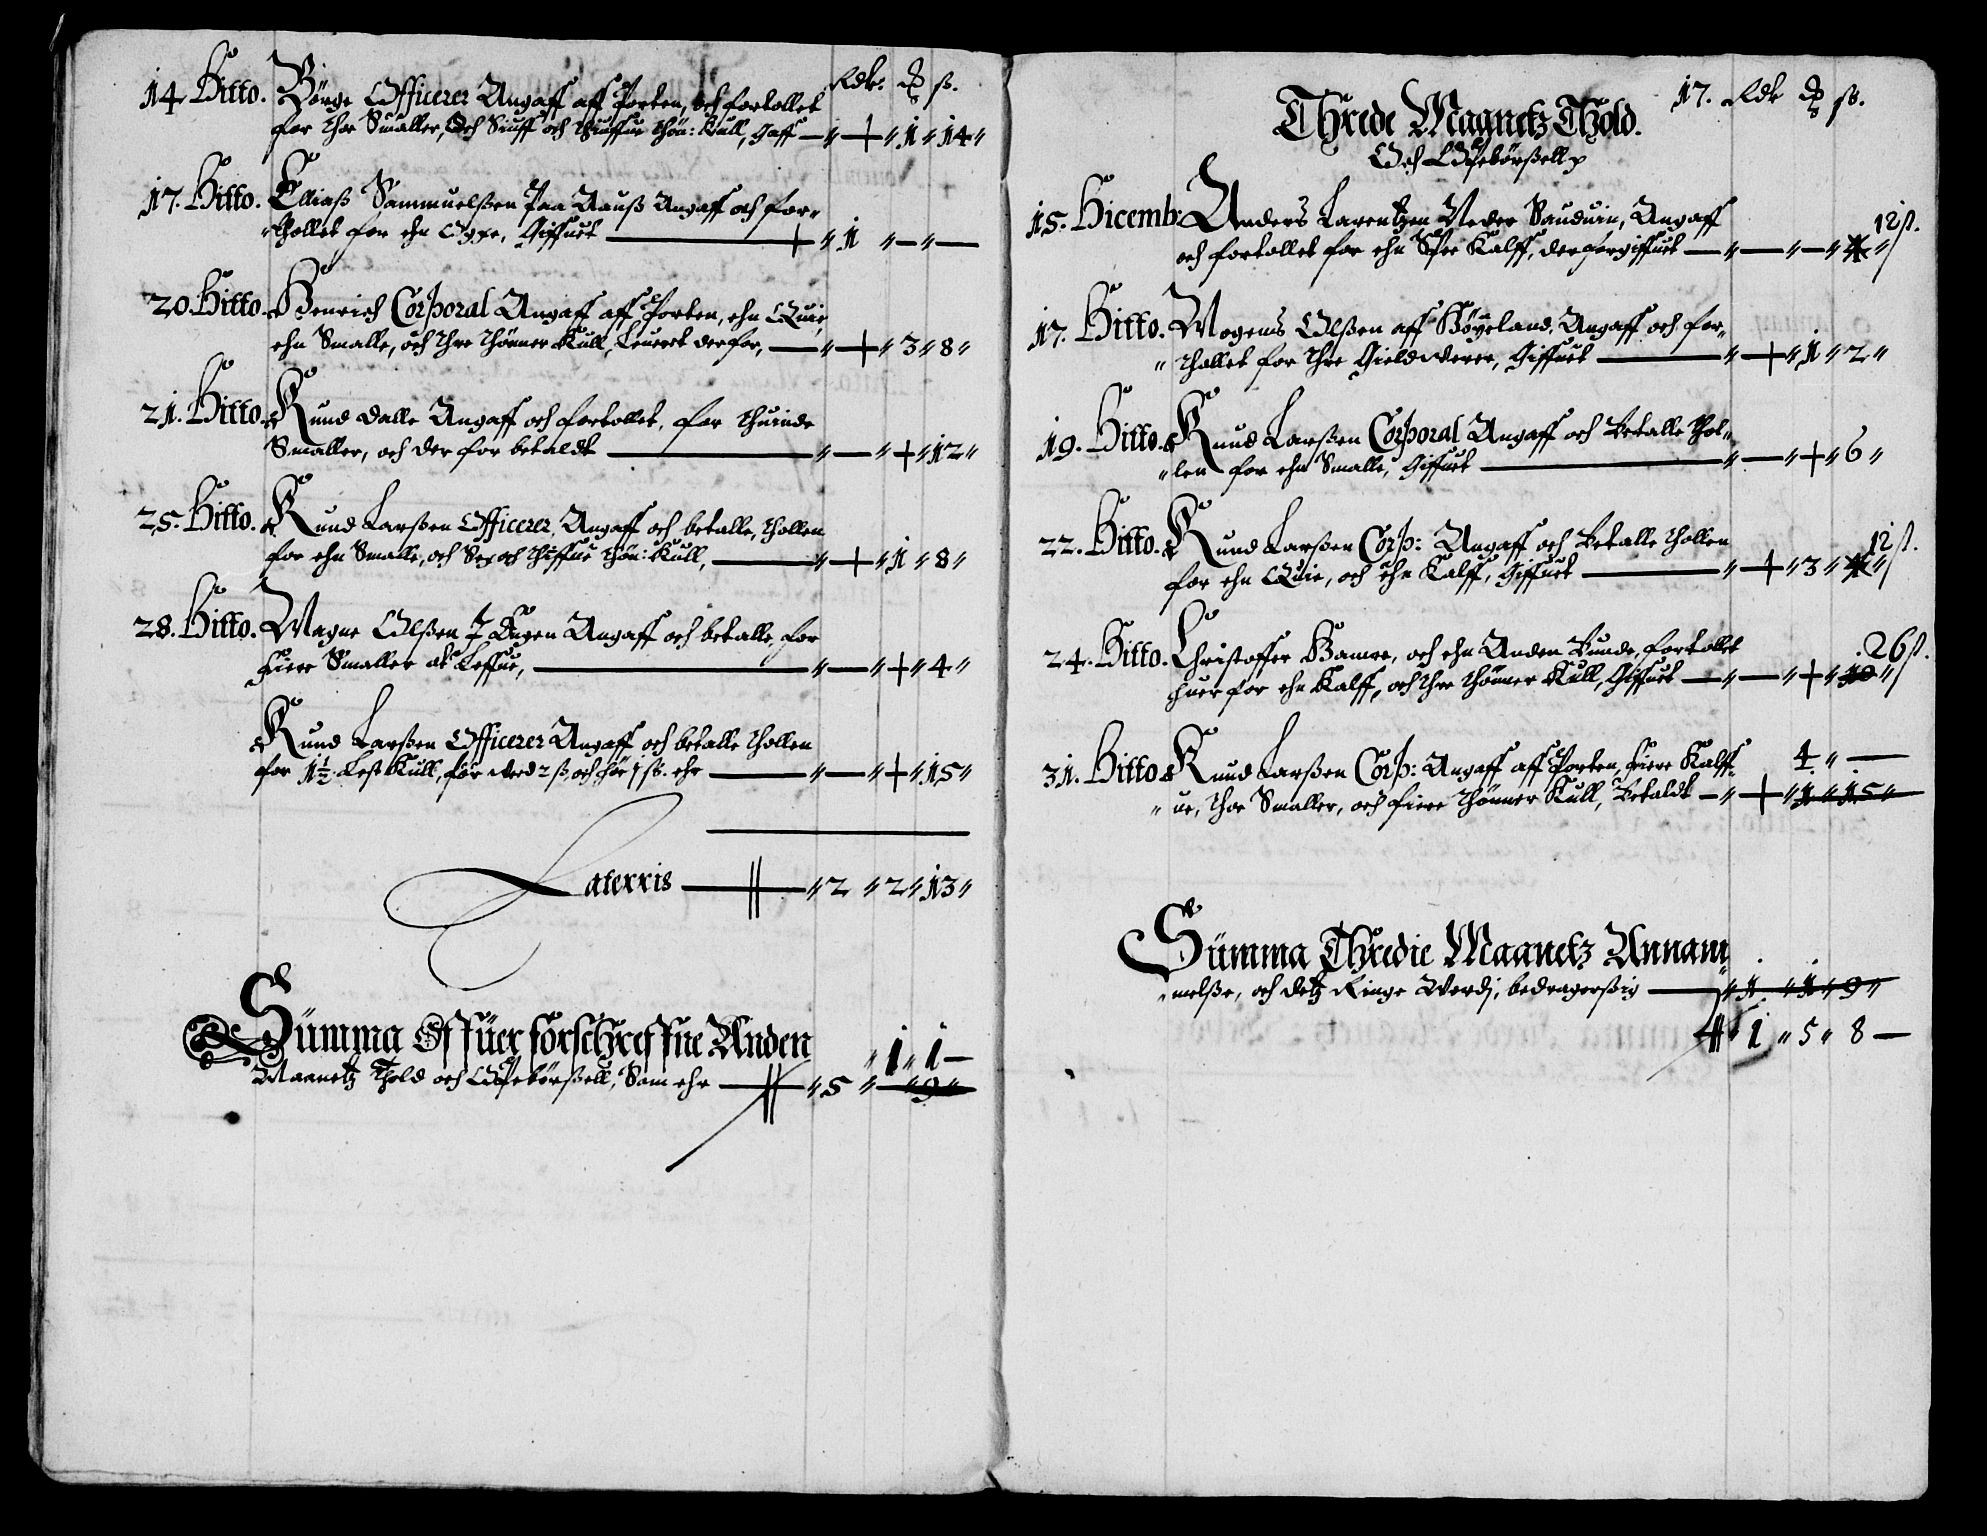 Rdr. ß.
14 Ditto. Børge Officerer Angaff aff Porten, och fortollet
for thor Smaller, Och Siuff och thiuffue thøn: Kull, Gaff — " — " 1 " 14 "
17. Ditto. Elliaß Sammuelßen Paa Aauß Angaff och for-
thollet for ehn Oxe, Giffuet — " 1 " — " —
20. Ditto. Henrich Corporal Angaff aff Porten, ehn Quie,
ehn Smalle, och thre thønner Kull, Leuert derfor, — " — " 3 " 8 "
21. Ditto. Knud Dalle Angaff och fortollet, for thuinde
Smaller, och der for betaldt — " — " — " 12 "
25. Ditto. Knud Larßen Officerer, Angaff och betalle, thollen
for ehn Smalle, och Sex och thiffue thøn: Kull, — " — " 1 " 8 "
28. Ditto. Magne Olßen Angaff och betalle, for
fiere Smaller at Leffue, — " — " — " 4 "
Knud Larßen Officerer Angaff och betalle thollen
for 1½ Lest Kull, for huer 2 ß och for 1 ß. ehr — " — " — " 15 "
Laterris — " 2 " 2 " 13 "
Summa Offuer forschreffne Anden " 1 " 1 —
Maanetz Thold och Opebørßell, Som ehr — " 5 " — " 9 "
17. Rdr ß.
Thredie Maanetz Thold.
Och Opebørßell
15. Dicemb: Anders Larentzen Neder Sauduin, Angaff 12 ß.
och fortollet for ehn Spee Kalff, derfor giffuet — " — " — " 4 "
17. Ditto. Mogens Olßen aff Høyeland, Angaff och for-
" thollet for thre Gieldwerer, Giffuet — " — " 1 " 2 "
19. Ditto. Knud Larßen Corporal Angaff och Betalle thol-
" len for ehn Smalle, Giffuet — " — " — " 6 "
22. Ditto. Knud Larßen Corp: Angaff och Betalle thollen 12 ß.
for ehn Quie, och ehn Kalff, Giffuet — " — " 3 " 4 "
24. Ditto. Christoffer Hamre, och ehn Anden Bunde, fortollet 26 ß.
huer for ehn Kalff, och thre thønner Kull, Giffuet — " — " — " 10 "
31. Ditto Knud Larßen Corp: Angaff aff Porten, fiere Kalff- 4 " —
" ue, thoe Smaller, och fiere thønner Kull, Betaldt — " — " 1 " 15 "
Summa Thredie Maanetz Annam-
melße, och detz Ringe Werdj, bedragerßig — " 1 " 1 " 9 "
" 1 " 5 " 8 —